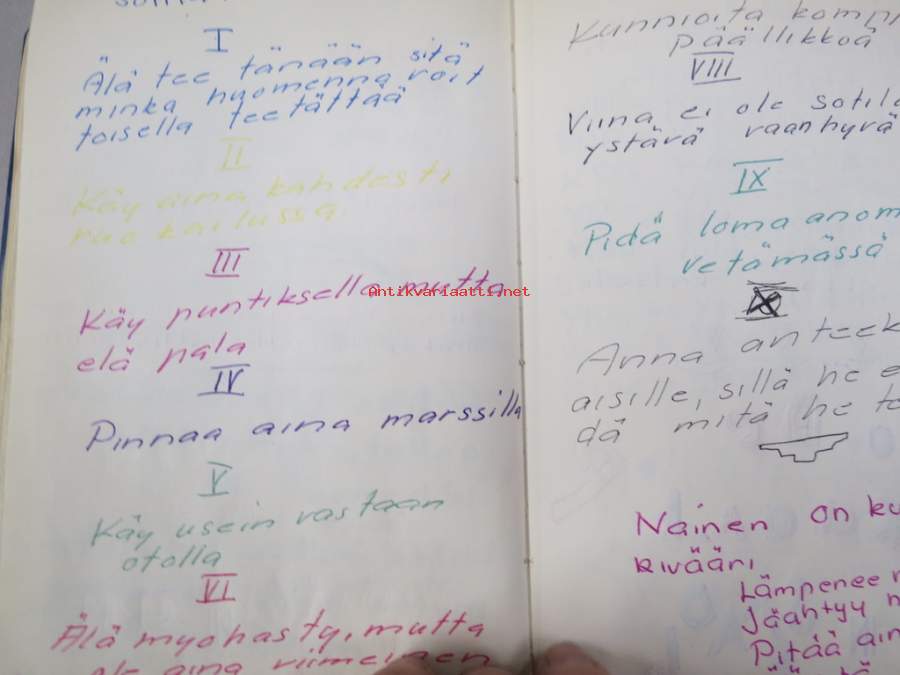 I
Älä tee tänään sitä
minkä huomenna voit
toisella teetättää
II
Käy aina kahdesti
ruokailussa
III
Käy puntiksella mutta
elä pala
IV
Pinnaa aina marssilla
V
Käy usein vastaan
otolla
VI
Älä myöhästy, mutta
ole aina viimeinen
Kunnioita komp
päällikköä
VIII
Viina ei ole sotil
ystävä vaan hyvä
IX
Pidä loma anom
vetämässä
X
Anna anteek
aisille, sillä he e
dä mitä he te
Nainen on ku
kivääri
Lämpenee n
Jäähtyy h
Pitää ain
Antikvariaatti.net